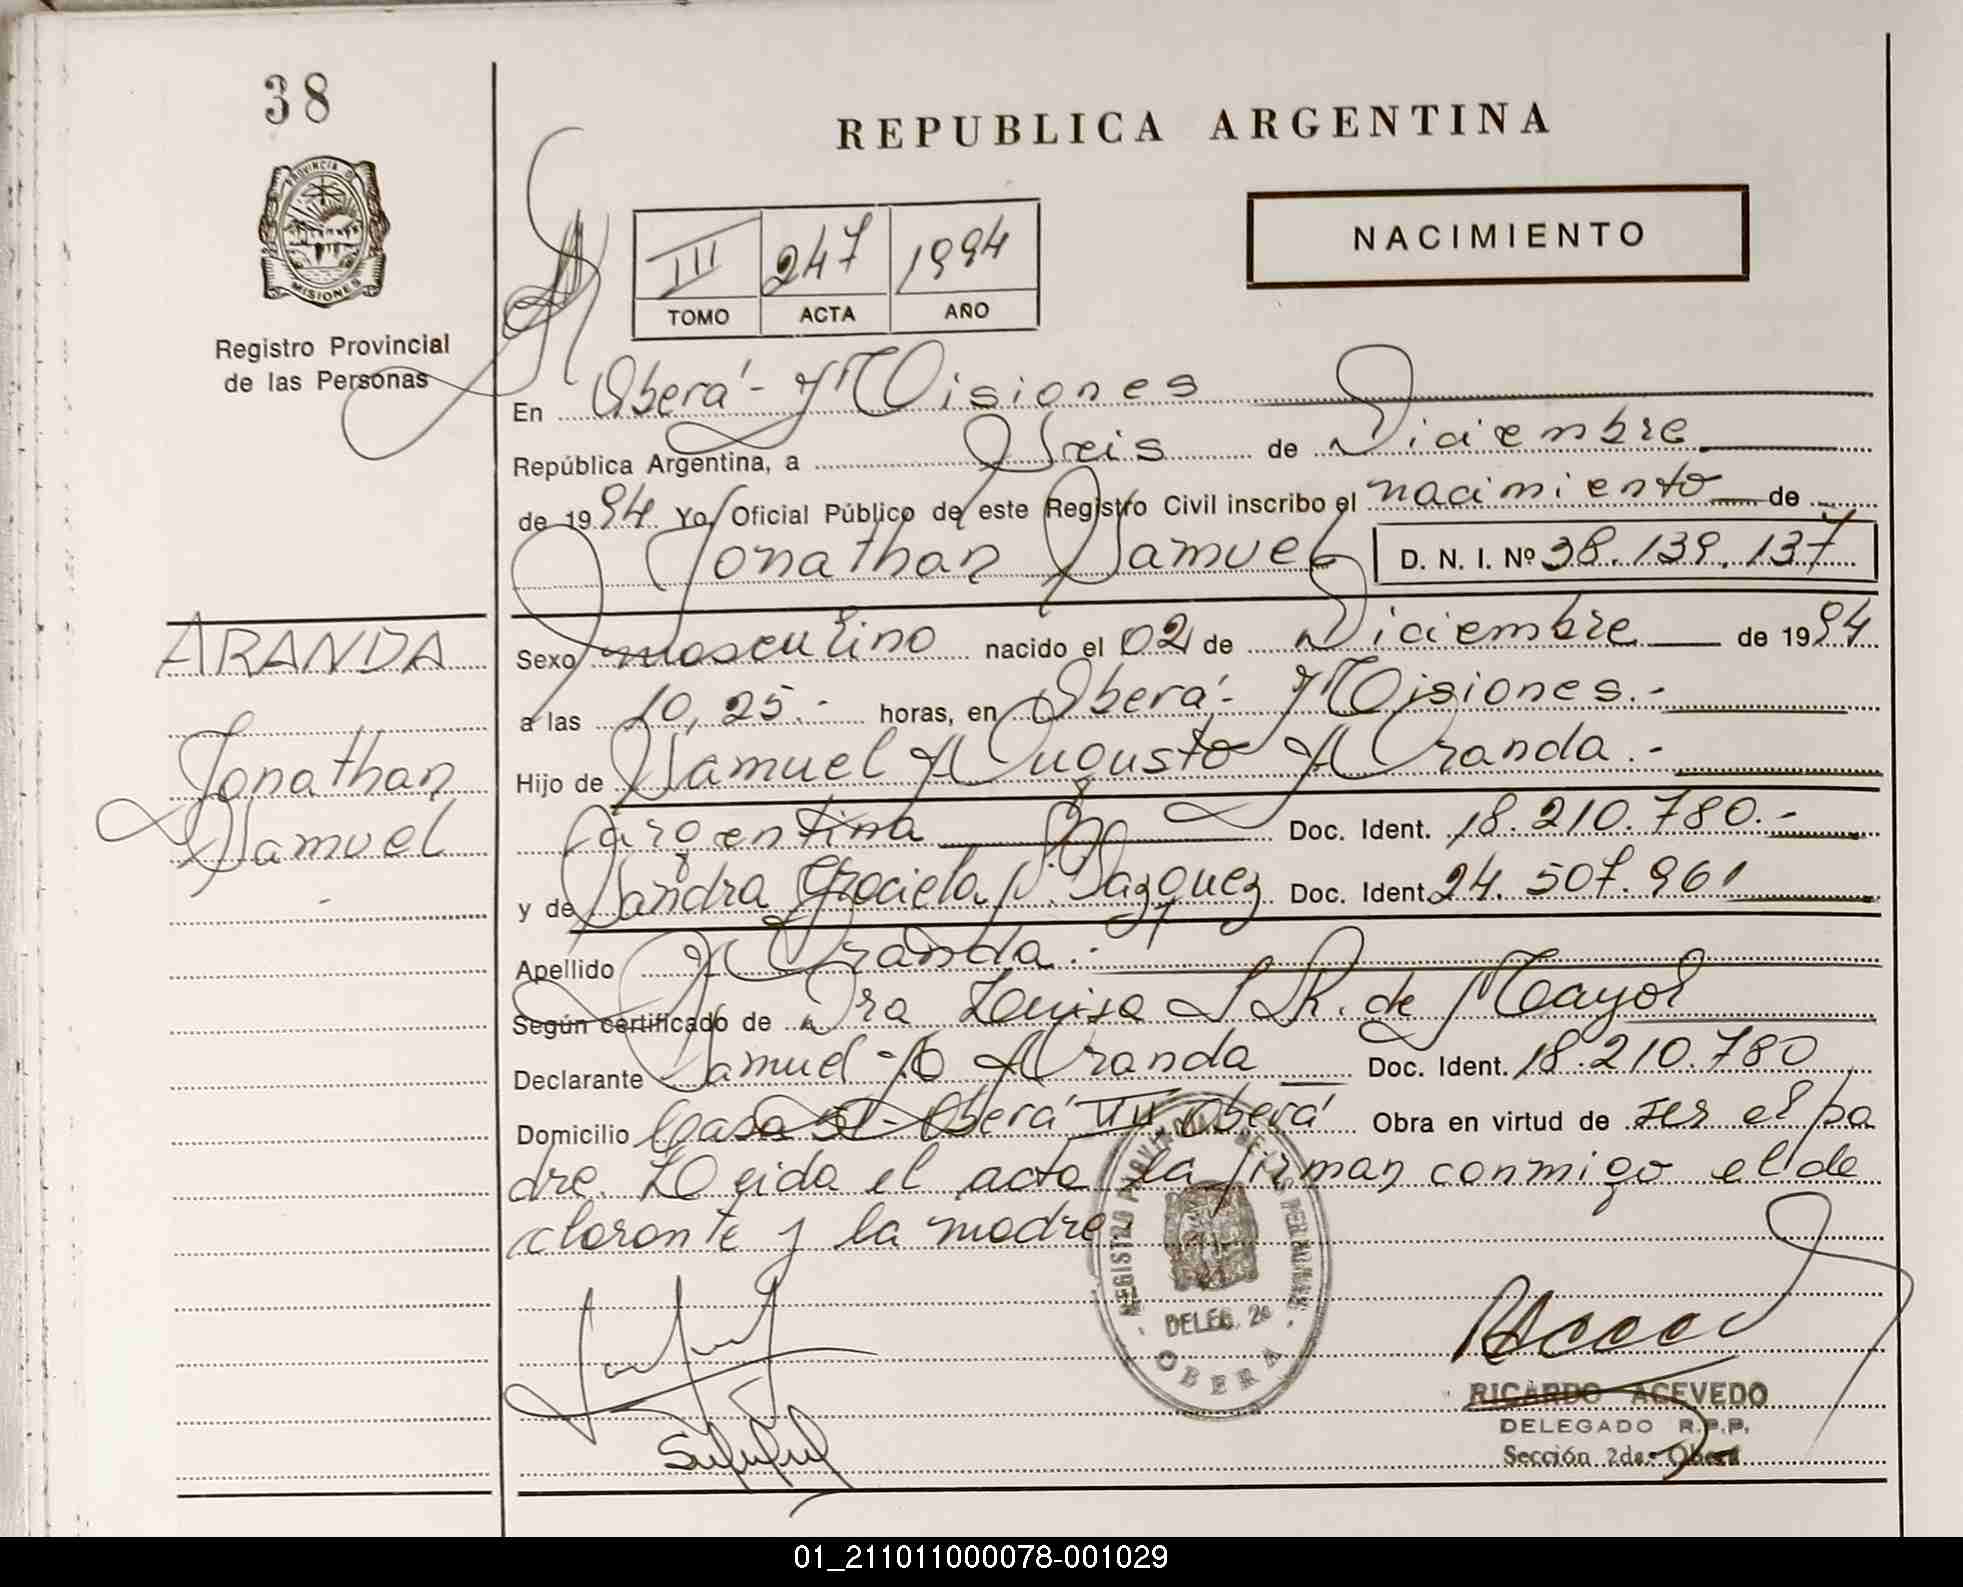 38
REPUBLICA ARGENTINA
PROVINCIA DE
MISIONES
NACIMIENTO
III 247 1994
TOMO ACTA AÑO
Registro Provincial
de las Personas
En Oberá - Misiones
República Argentina, a Seis de Diciembre
de 1994 Yo Oficial Público de este Registro Civil inscribo el nacimiento de
Jonathan Samuel D. N. I. Nº 38.139.137
ARANDA
Jonathan
Samuel
Sexo masculino nacido el 02 de Diciembre de 1994
a las 10,25.- horas, en Oberá - Misiones.-
Hijo de Samuel Augusto Aranda.-
argentina Doc. Ident. 18.210.780.-
y de Sandra Graciela Vazquez Doc. Ident. 24.507.961
Apellido Aranda.-
Según certificado de Dra Luisa S R. de Mayol
Declarante Samuel A Aranda Doc. Ident. 18.210.780
Domicilio Casa 51 - Oberá III. Oberá Obra en virtud de ser el pa
dre. Leida el acta la firman conmigo el de
clarante y la madre.
REGISTRO PROVINCIAL DE LAS PERSONAS
DELEG. 2a
OBERA
RICARDO ACEVEDO
DELEGADO R.P.P.
Sección 2da - Oberá
01_211011000078-001029